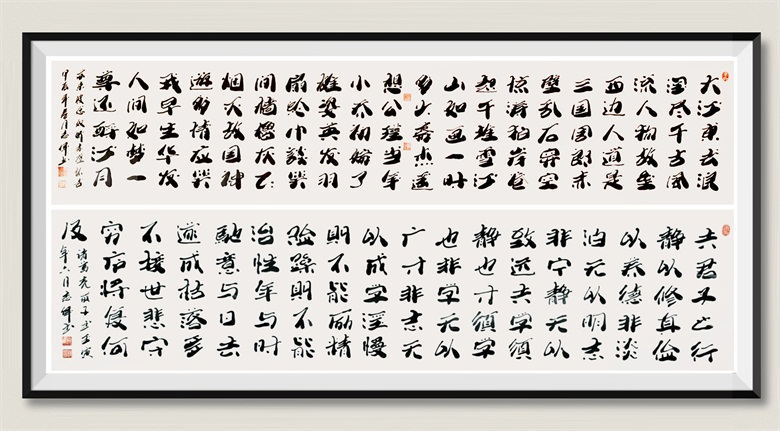 大江東去浪
淘尽千古风
流人物故垒
西边人道是
三国周郎赤
壁乱石穿空
惊涛拍岸卷
起千堆雪江
山如画一时
多少豪杰遥
想公瑾当年
小乔初嫁了
雄姿英发羽
扇纶巾谈笑
间樯橹灰飞
烟灭故国神
遊多情应笑
我早生华发
人间如梦一
尊还酹江月
甲辰年
夫君子之行
静以修身俭
以养德非淡
泊无以明志
非宁静无以
致远夫学须
静也才须学
也非学无以
广才非志无
以成学淫慢
则不能励精
险躁则不能
治性年与时
驰意与日去
遂成枯落多
不接世悲守
穷庐将复何
及
诸葛亮诫子书壬寅
年六月志书